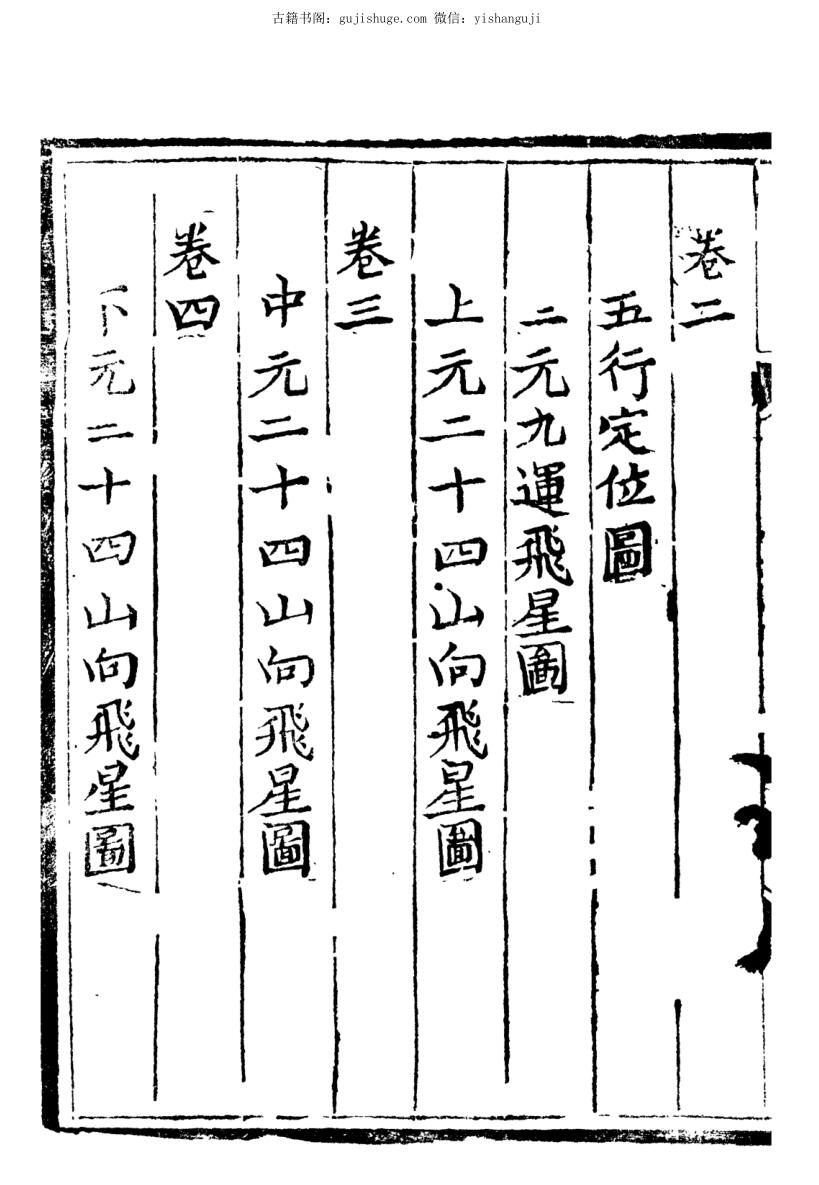 古籍书阁：gujishuge.com 微信：yishanguji
卷二
五行定位圖
二元九運飛星圖
上元二十四山向飛星圖
卷三
中元二十四山向飛星圖
卷四
下元二十四山向飛星圖